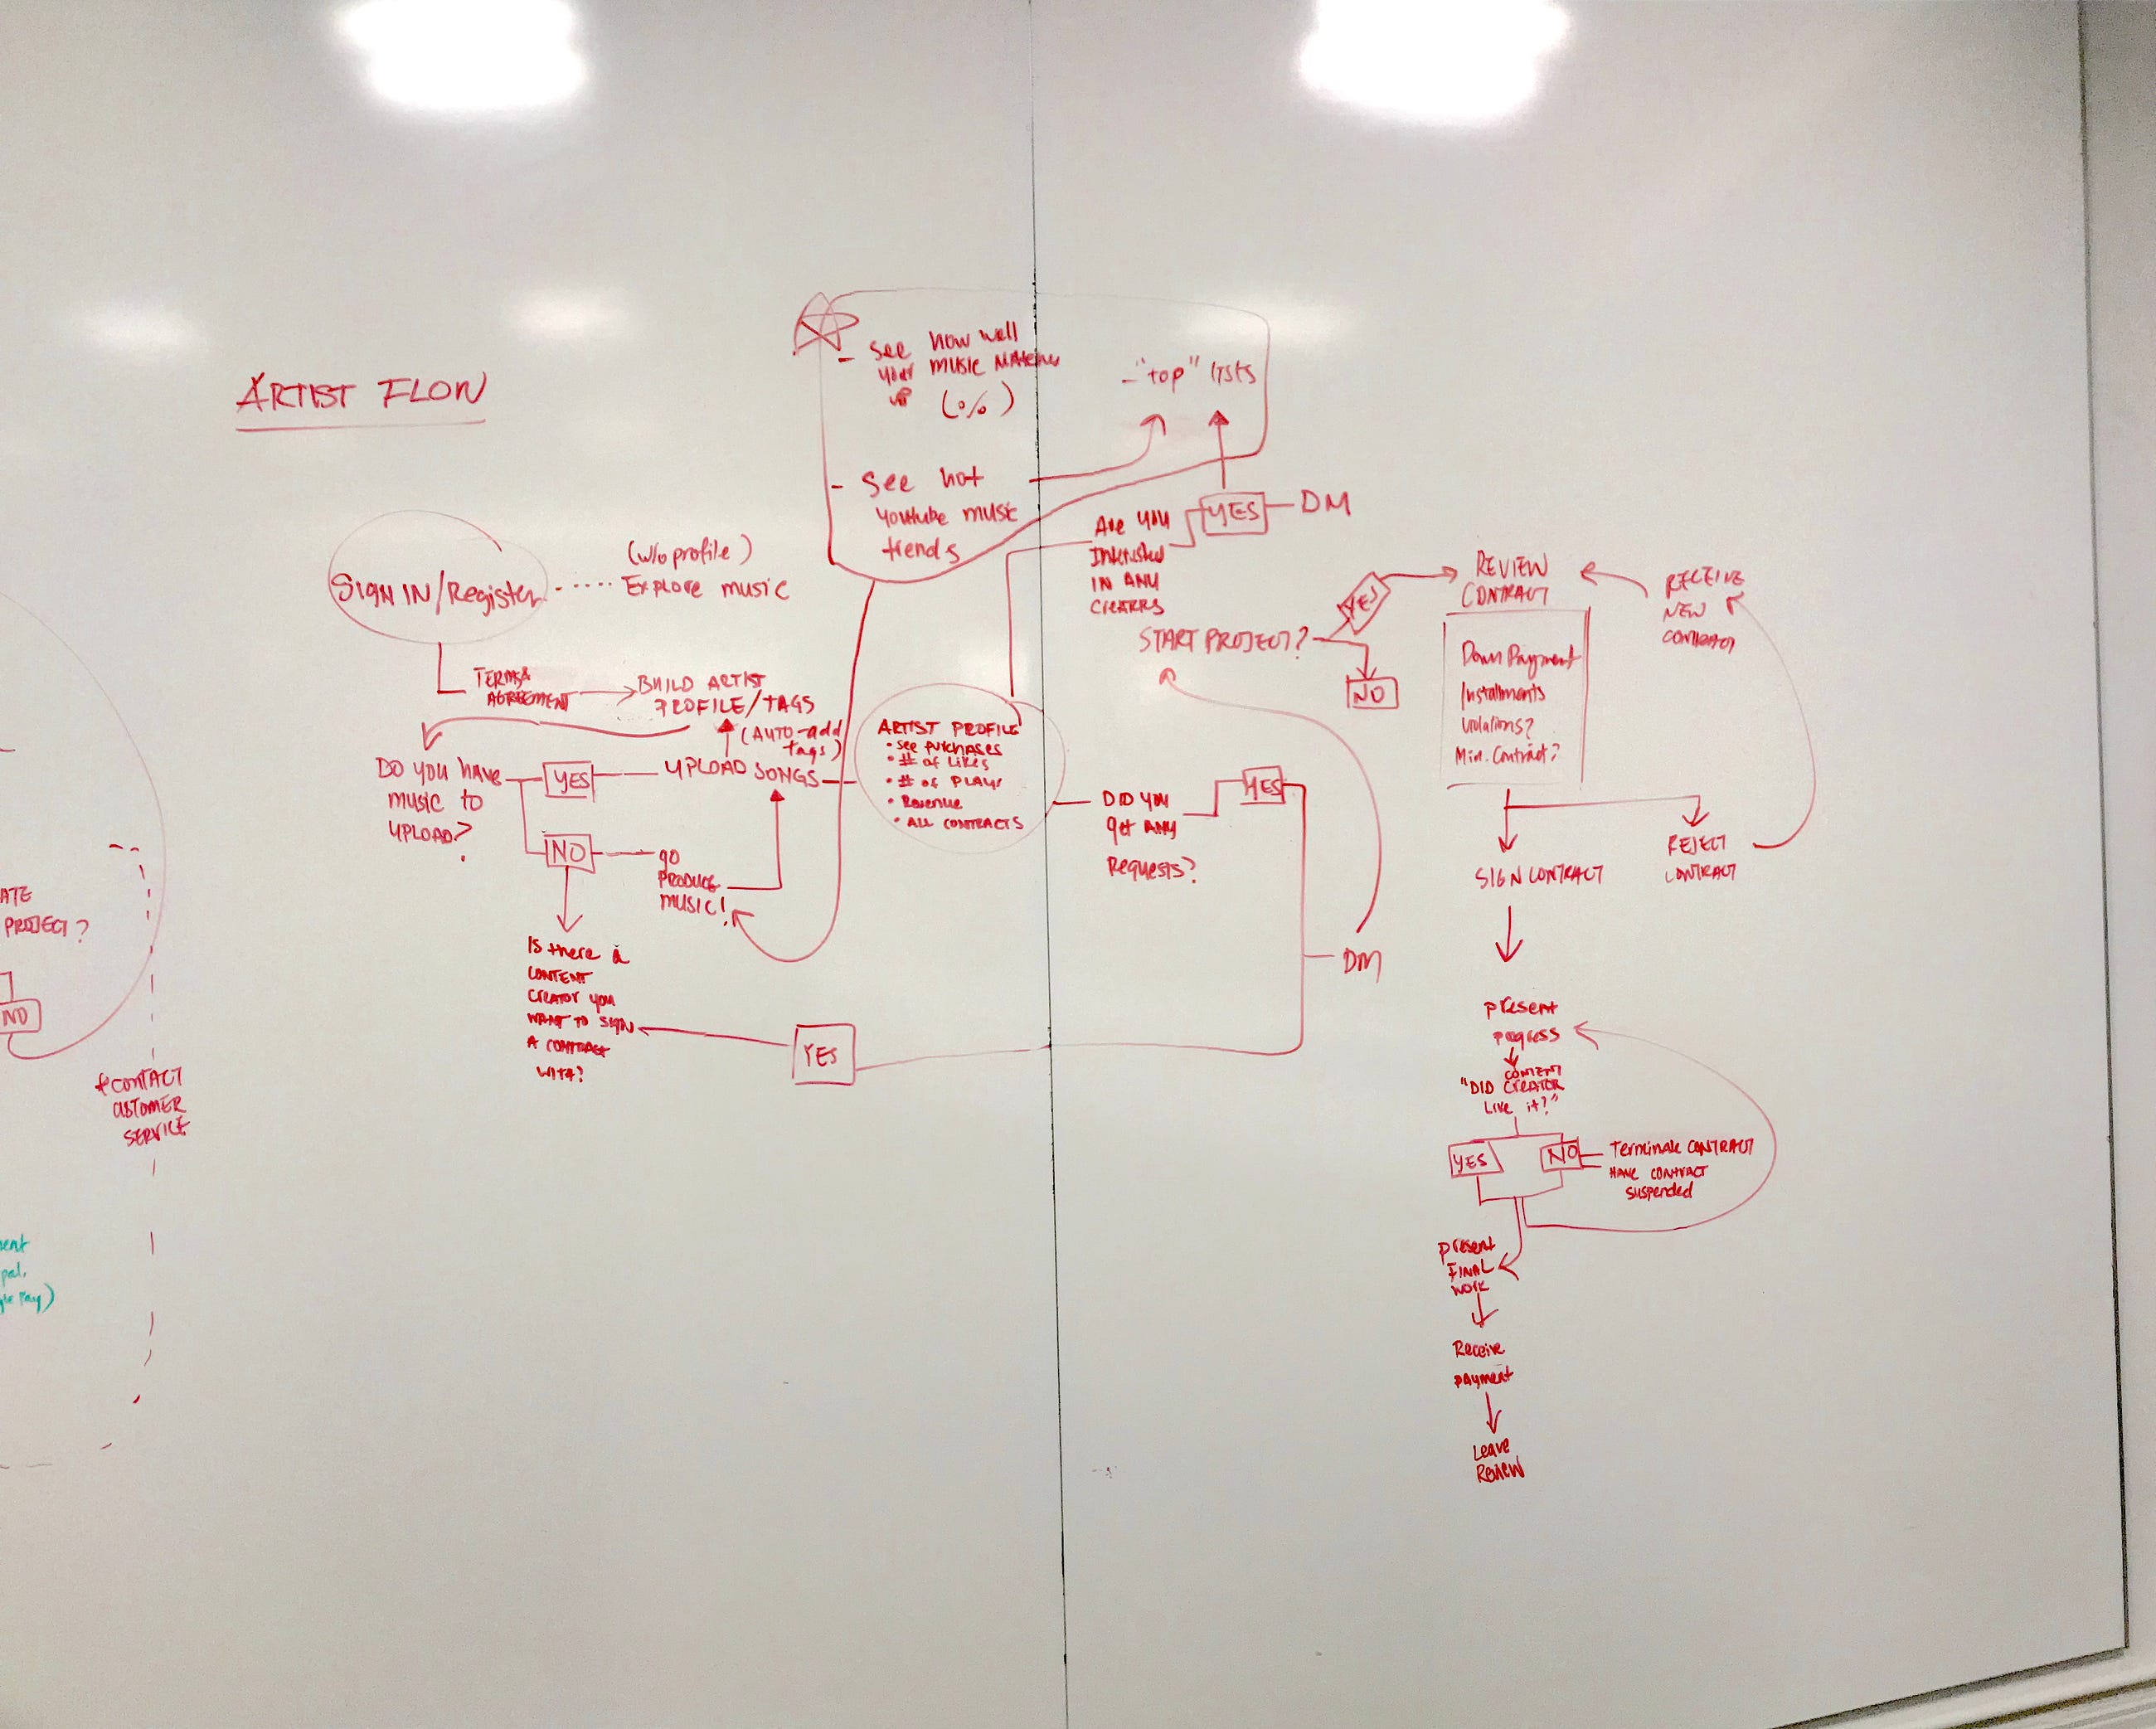 ARTIST FLOW
SIGN IN/Register
(w/o profile)
Explore music
TERMS
AGREEMENT
BUILD ARTIST
PROFILE/TAGS
(AUTO-add
tags)
DO YOU have
music to
UPLOAD?
YES
UPLOAD SONGS
NO
go
PRODUCE
MUSIC!
Is there a
CONTENT
CREATOR YOU
WANT TO SIGN
A CONTRACT
WITH?
YES
- see how well
your music matches
up (%)
- See hot
youtube music
trends
- "top" lists
ARTIST PROFILE
• see purchases
• # of Likes
• # of PLAYS
• Revenue
• ALL CONTRACTS
Are you
Interested
IN ANY
YES
DM
DID YOU
get any
Requests?
YES
DM
START PROJECT?
YES
NO
REVIEW
CONTRACT
Down Payment
Installments
Violations?
Min. Contract?
RECEIVE
NEW
CONTRACT
SIGN CONTRACT
REJECT
CONTRACT
present
progress
CONTENT
"DID CREATOR
Like it?"
YES
NO
Terminate CONTRACT
HAVE CONTRACT
suspended
present
FINAL
WORK
Receive
payment
Leave
Review
ATE
PROJECT?
NO
*CONTACT
CUSTOMER
SERVICE
ent
pal,
gle Pay)